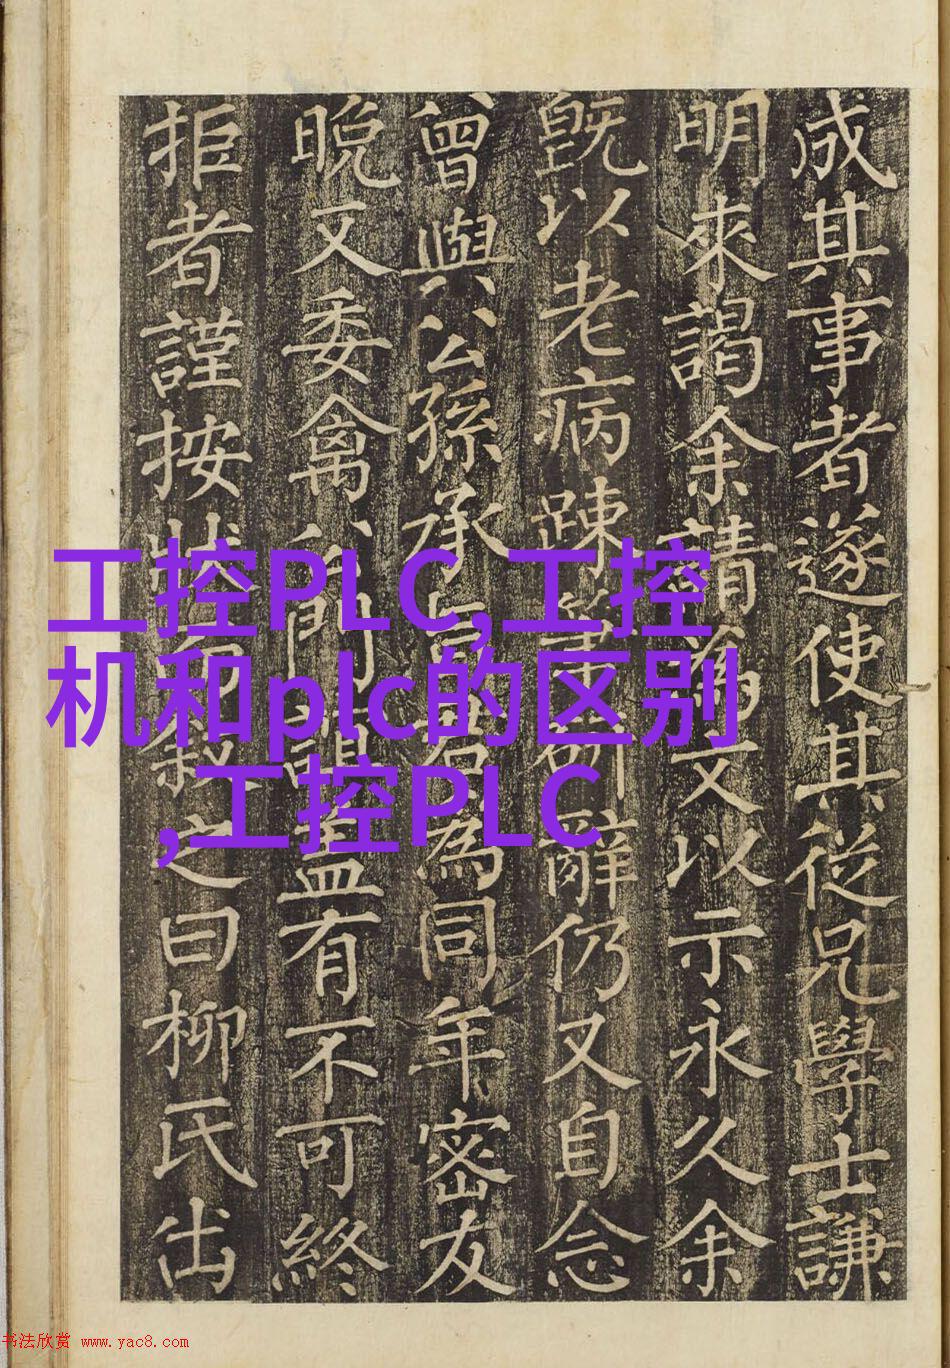 成其事者遂使其從兄學士謙
明來謁余請為文以示永久余
既以老病踈筆研辭仍又自念
曾與公孫承旨君為同年密友
晚又委禽門誼盖有不可終
拒者謹按狀叙之曰柳氏出
工控PLC,工控
机和plc的区别
,工控PLC
书法欣赏 www.yac8.com